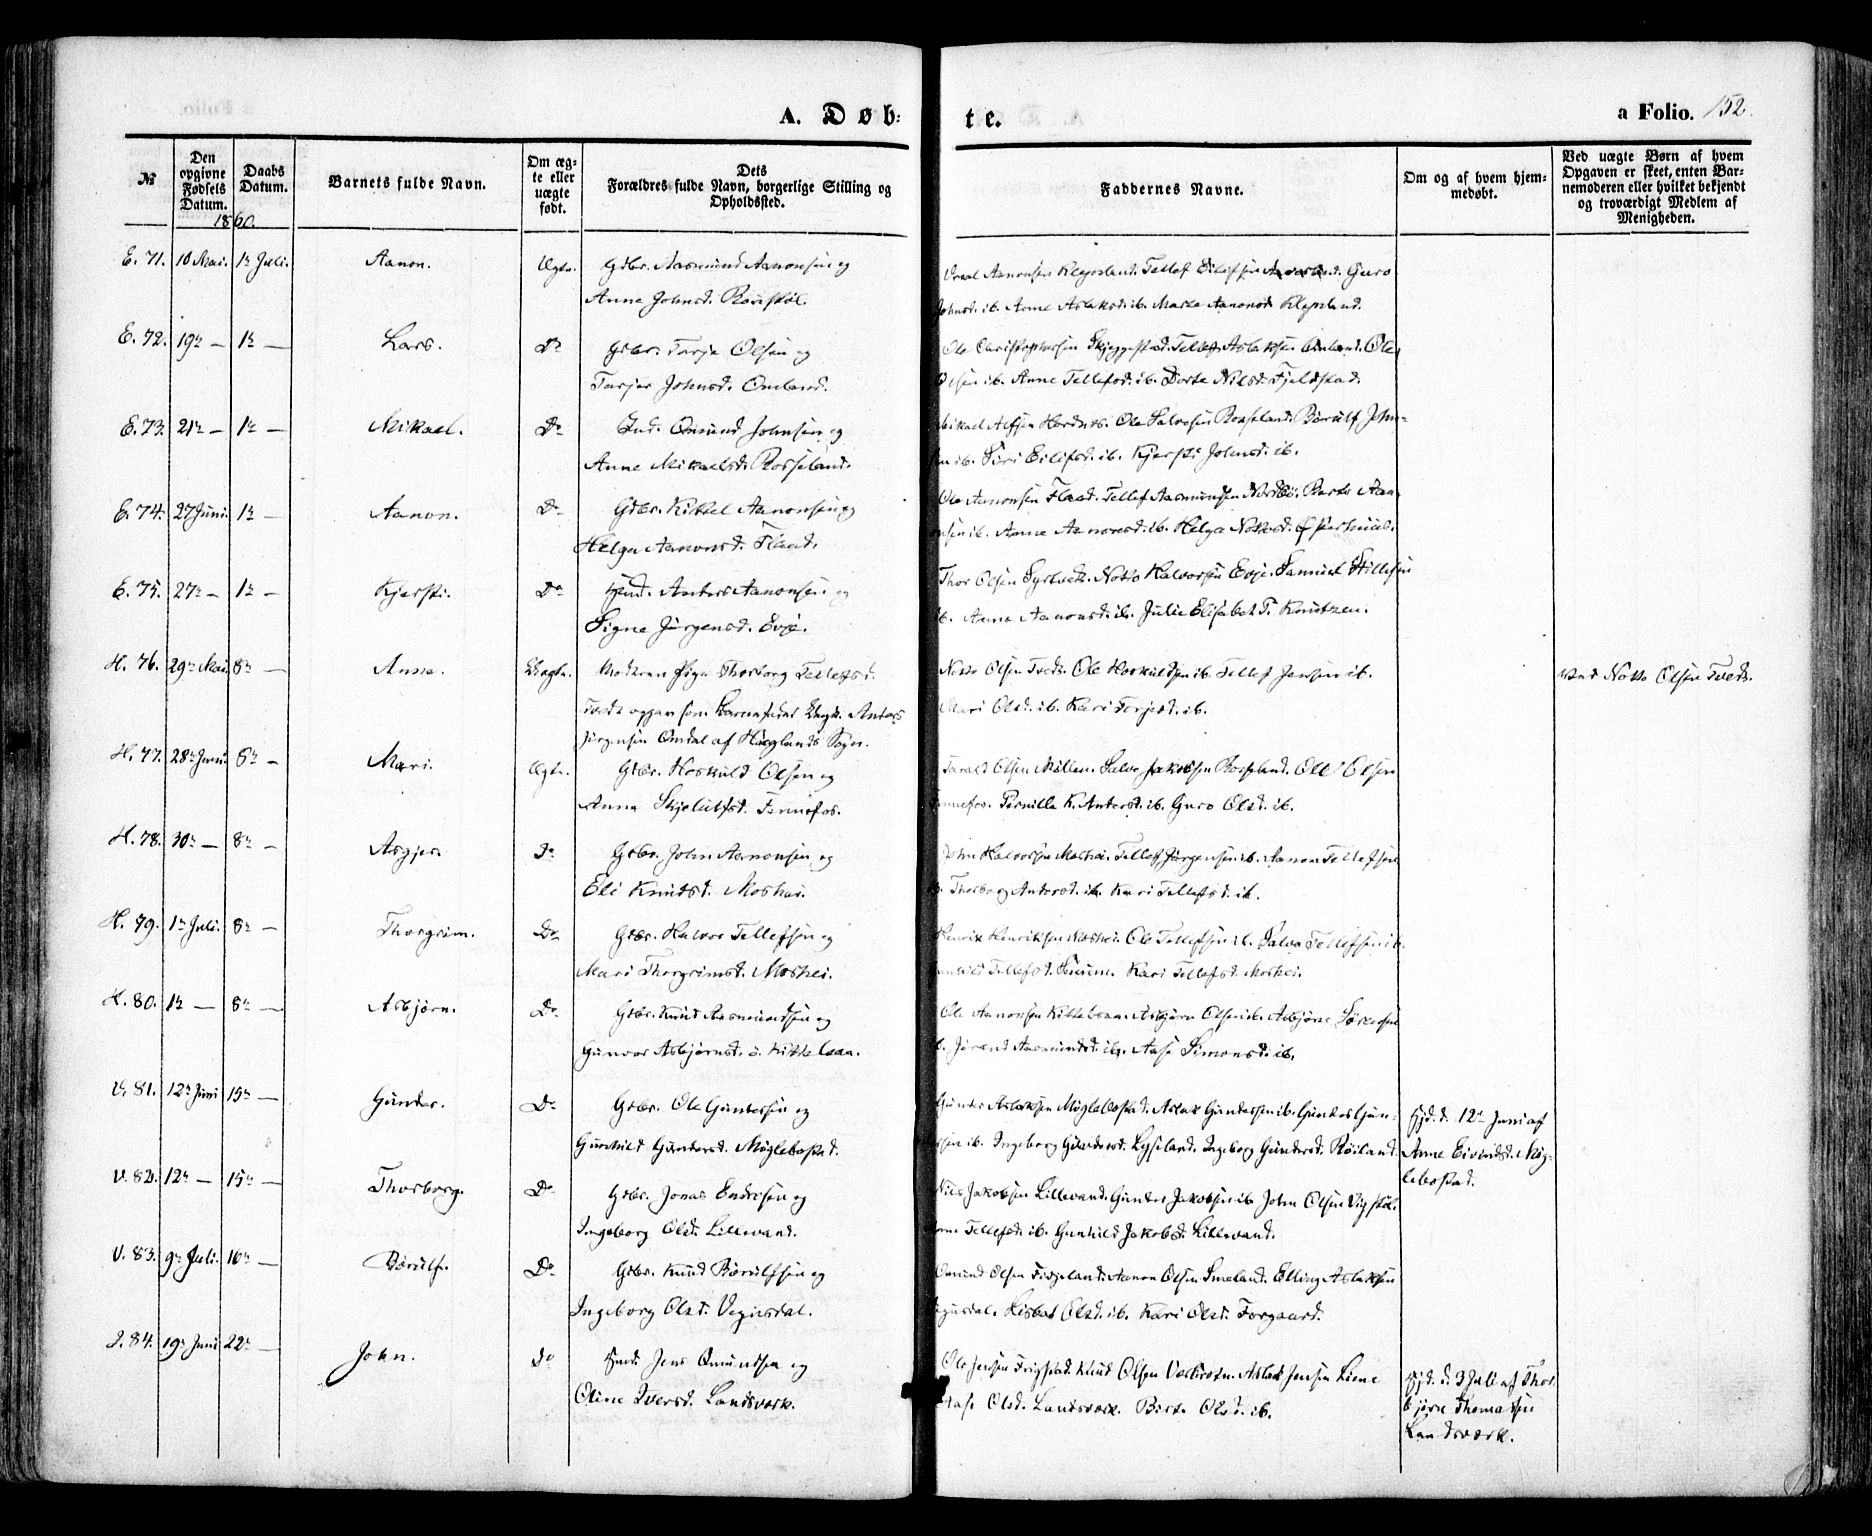 A. Døb:
te.
a Folio. 152.
№
Den opgivne Fødsels Datum.
Daabs Datum.
Barnets fulde Navn.
Om ægte eller uægte født.
Dets Forældres fulde Navn, borgerlige Stilling og Opholdssted.
Faddernes Navne.
Om og af hvem hjemmedøbt.
Ved uægte Børn af hvem Opgaven er skeet, enten Barnemoderen eller hvilket bekjendt og troværdigt Medlem af Menigheden.
1860.
E. 71. 10 Mai. 1ste Juli. Aanon. Ægte. Gdbr. Aasmund Aanonsen og
Anne Johnsd. Røistøl.
Aanonsen Klepsland. Tellef Eilefsen Guro
Johnsd. ib. Anne Aslaksd. ib. Marte Aanonsd. Klepsland.
E. 72. 19de — 1ste — Lars. Do Gdbr. Tarje Olsen og
Tarjer Johnsd. Omland.
Ole Christophersen Skjeggestad. Tellef Aslaksen Omland. Ole
Olsen ib. Anne Tellefsd. ib. Dorte Nilsd. Fjeldstad.
E. 73. 21de — 1ste — Mikael. Do Ind. Omund Johnsen og
Anne Mikaelsd. Rosseland.
Mikael Alfsen Ole Salvesen Rosseland. Børulf John-
sen ib. Siri Eilifsd. ib. Kjersti Johnsd. ib.
E. 74. 27 Juni. 1ste — Aanon. Do Gdbr. Kittel Aanonsen og
Helga Aanonsd. Flaad.
Ole Aanonsen Flaad. Tellef Aasmundsen Aan-
onsen ib. Anne Aanonsd. ib. Helga
E. 75. 27de — 1ste — Kjersti. Do Anders Aanonsen og
Signe Jørgensd. Evje.
Thor Olsen Syrtveit. Notto Halvorsen Evje. Samuel
ib. Anne Aanonsd. ib. Julie Elisabet T. Knutzen.
H. 76. 29de Mai 8de — Anna. Uægte. Moderen Pige Thorborg Tellefsd.
Tveit opgav som Barnefader Ungk. Anders
Jørgensen Omdal af Hæglands Sogn.
Notto Olsen Tveit. Ole Hoskuldsen ib. Tellef Jensen ib.
Mari Olsd. ib. Kari Torjesd. ib.
ved Notto Olsen Tveit.
H. 77. 28de Juni. 8de — Mari. Ægte. Gdbr. Hoskuld Olsen og
Anna Fennefos.
Tarald Olsen Møllen. Salve Jakobsen Rosseland. Ole Olsen
Fennefos. Pernille K. Andersd. ib. Guro Olsd. ib.
H. 78. 30te — 8de — Asgjer. Do Gdbr. John Aanonsen og
Eli Knudsd. Moshei.
John Halvorsen Moshei. Tellef Jørgensen ib. Aanon Tellefsen
ib. Thorborg Andersd. ib. Kari Tellefsd. ib.
H. 79. 1ste Juli. 8de — Thorgrim. Do Gdbr. Halvor Tellefsen og
Mari Thorgrimsd. Moshei.
Henrik Henriksen Moshei. Ole Tellefsen ib. Salve Tellefsen ib.
Gunhild Tellefsd. Kari Tellefsd. Moshei.
H. 80. 1ste — 8de — Asbjørn. Do Gdbr. Knud Aasmundsen og
Gunvor Asbjørnsd. ö. Kittelsaa.
Ole Aanonsen Kittelsaa. Asbjørn Olsen ib. Asbjørn Sørensen
ib. Jørand Aasmundsd. ib. Aase Simonsd. ib.
V. 81. 12te Juni 15de — Gunder. Do Gdbr. Ole Gundersen og
Gunhild Gundersd. Møglebostad.
Gunder Aslaksen Møglebostad. Aslak Gundersen ib. Gunder Gun-
dersen ib. Ingeborg Gundersd. Lyseland. Ingeborg Gundersd. Røiland.
Hjd. d. 12te Juni af
Anne Eivindsd. Møg-
lebostad.
V. 82. 12te — 15de — Thorborg. Do Gdbr. Jonas Endresen og
Ingeborg Olsd. Lillevand.
Nils Jakobsen Lillevand. Gunder Jakobsen ib. John Olsen Vigstøl.
Anne Tellefsd. ib. Gunhild Jakobsd. Lillevand.
V. 83. 9de Juli. 16de — Børulf. Do Gdbr. Knud Børulfsen og
Ingeborg Olsd. Vegusdal.
Omund Olsen Aanon Olsen Elling Aslaksen
Vegusdal. Lisbet Olsd. ib. Kari Olsd.
J. 84. 19de Juni 22de — John. Do Jens Omundsen og
Oline Iversd. Landsværk.
Ole Jensen Frigstad. Knud Olsen Aslak Jensen Liene
Aase Olsd. Landsværk. Berte Olsd. ib.
Hjd. d. 3 Juli af Thor-
bjørn Thomassen
Landsværk.